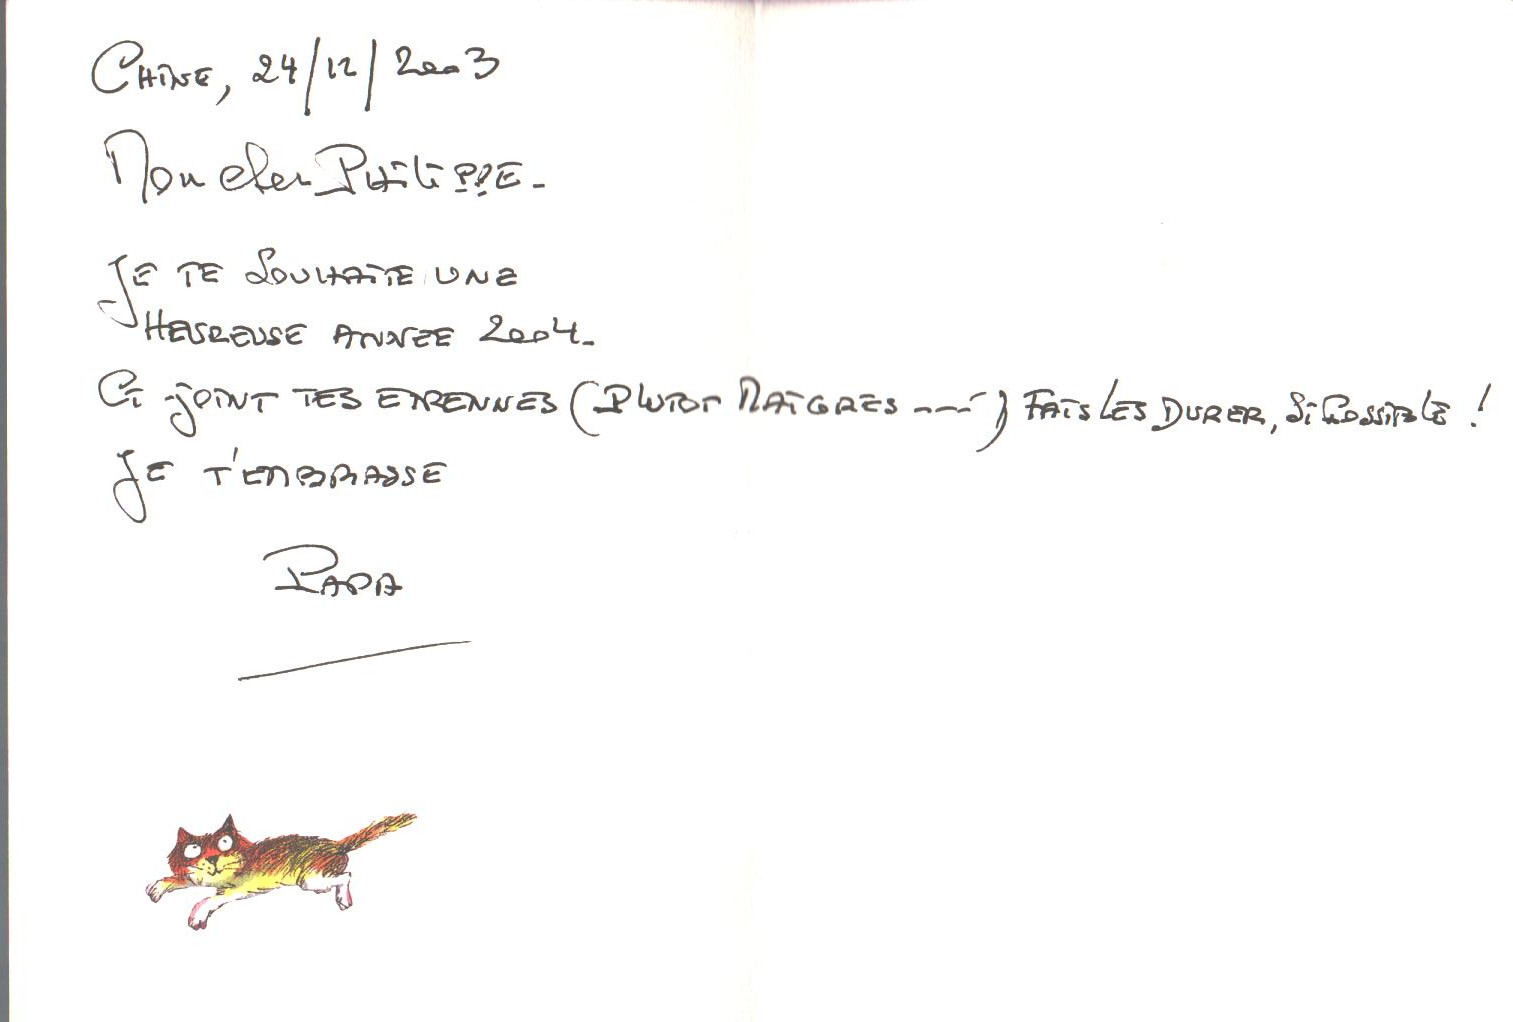 CHINE, 24/12/2003
Mon cher PHILIPPE-
JE TE SOUHAITE UNE
HEUREUSE ANNEE 2004-
CI-JOINT TES ETRENNES (PLUTOT MAIGRES ----) FAIS LES DURER, SI POSSIBLE !
JE T'EMBRASSE
PAPA